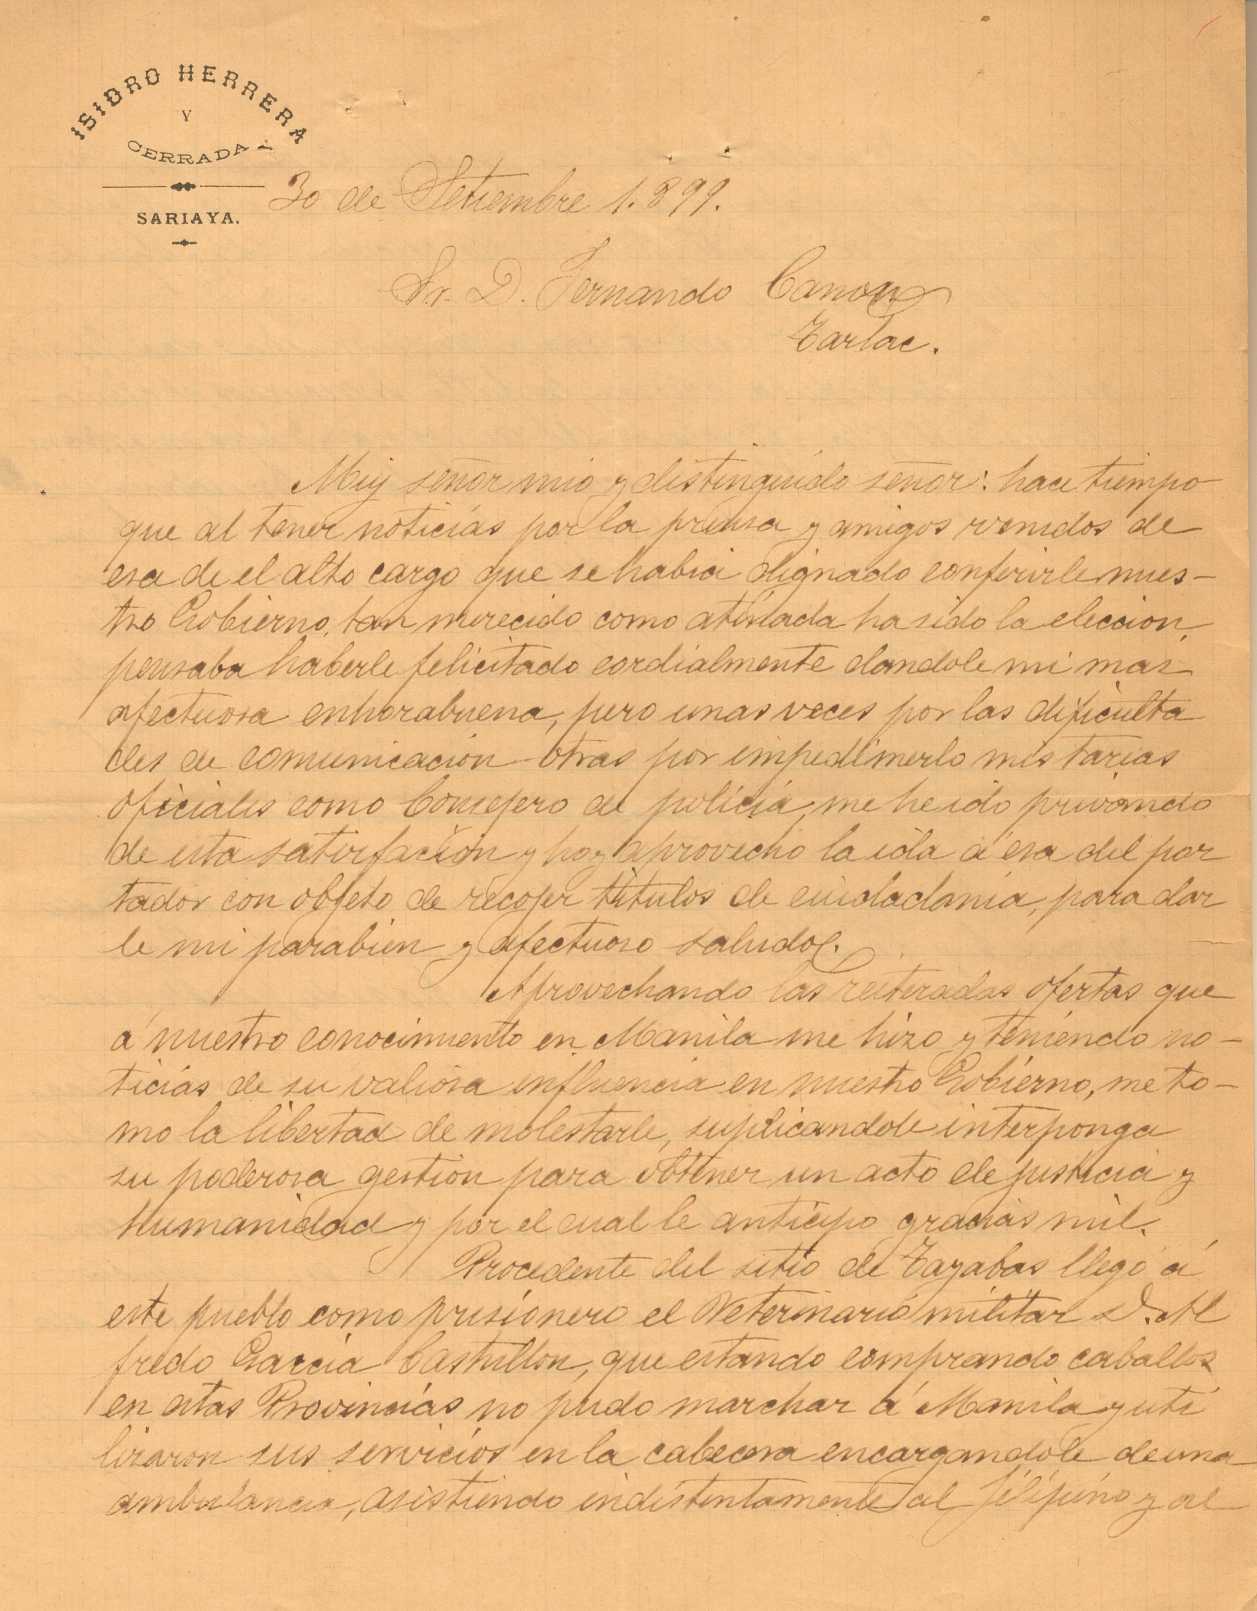 ISIDRO HERRERA
Y
CERRADA
SARIAYA.
30 de Setiembre 1.899.
Sr. D. Fernando Canon
Tarlac.
Muy señor mio y distinguido señor: hace tiempo
que al tener noticias por la prensa y amigos venidos de
esa de el alto cargo que se habia dignado conferirle nues-
tro Gobierno, tan merecido como atinada ha sido la eleccion,
pensaba haberle felicitado cordialmente dandole mi mas
afectuosa enhorabuena, pero unas veces por las dificulta
des de comunicación otras por impedirmerlo mis tarias
oficiales como Consejero de policia, me he ido privando
de esta satisfacción y hoy aprovecho la ida á esa del por
tador con objeto de recojer titulos de ciudadania, para dar
le mi parabien y afectuoso saludo.
Aprovechando las reiteradas ofertas que
á nuestro conocimiento en Manila me hizo y teniendo no-
ticias de su valiosa influencia en nuestro Gobierno, me to-
mo la libertad de molestarle, suplicandole interponga
su poderosa gestion para obtener un acto de justicia y
humanidad y por el cual le anticipo gracias mil.
Procedente del sitio de Tayabas llegó á
este pueblo como prisionero el Veterinario militar D. Al
fredo Garcia Castrillon, que estando comprando caballos
en estas Provincias no pudo marchar á Manila y uti
lizaron sus servicios en la cabecera encargandole de una
ambulancia, asistiendo indistintamente al filipino y al